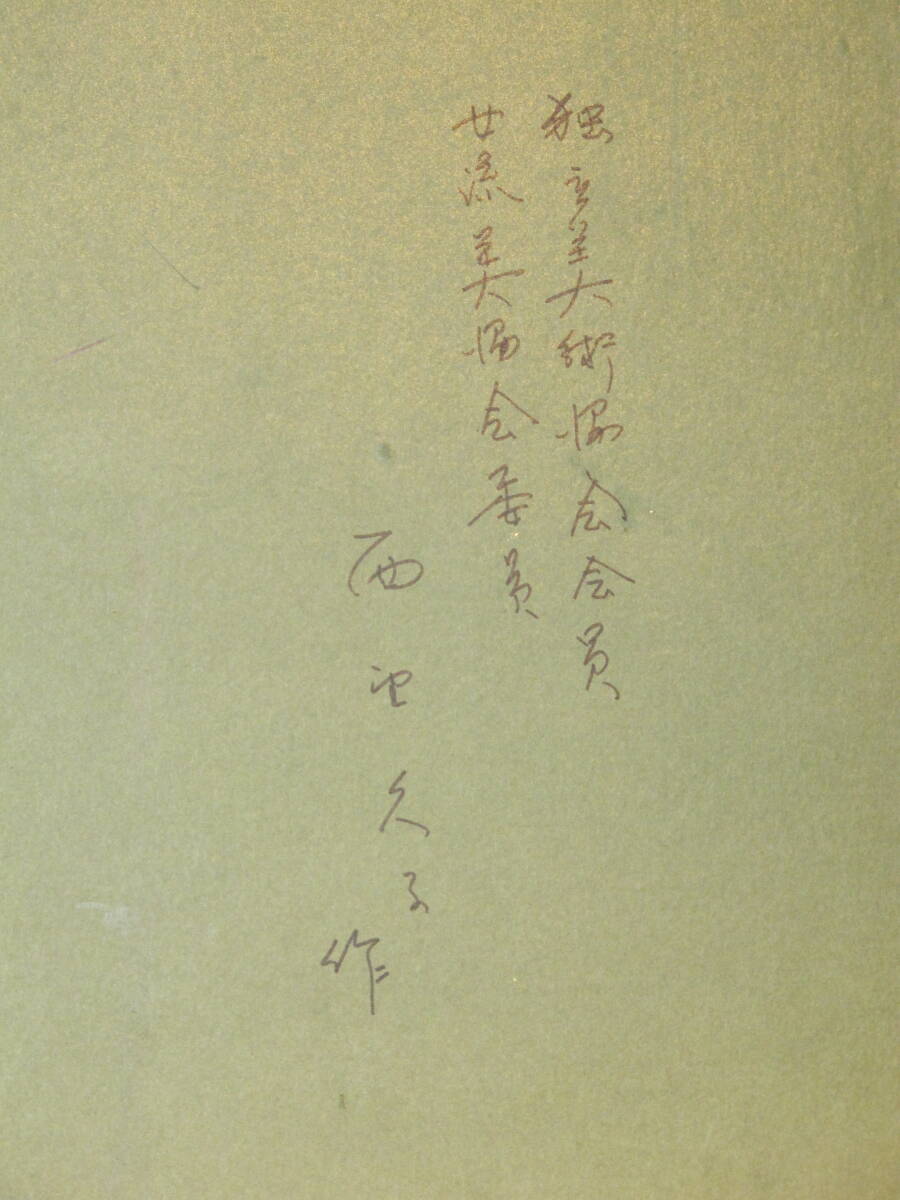 独立美術協会会員
女流美協会委員
西 久子
作